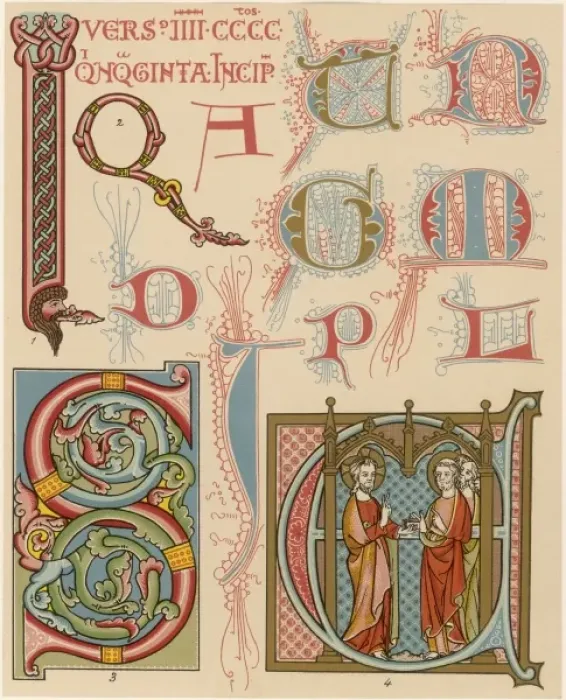 TOS.
VERS. IIII. CCCC.
QNQGINTA: INCIP.
2
A
D
G
M
P
L
1
3
4